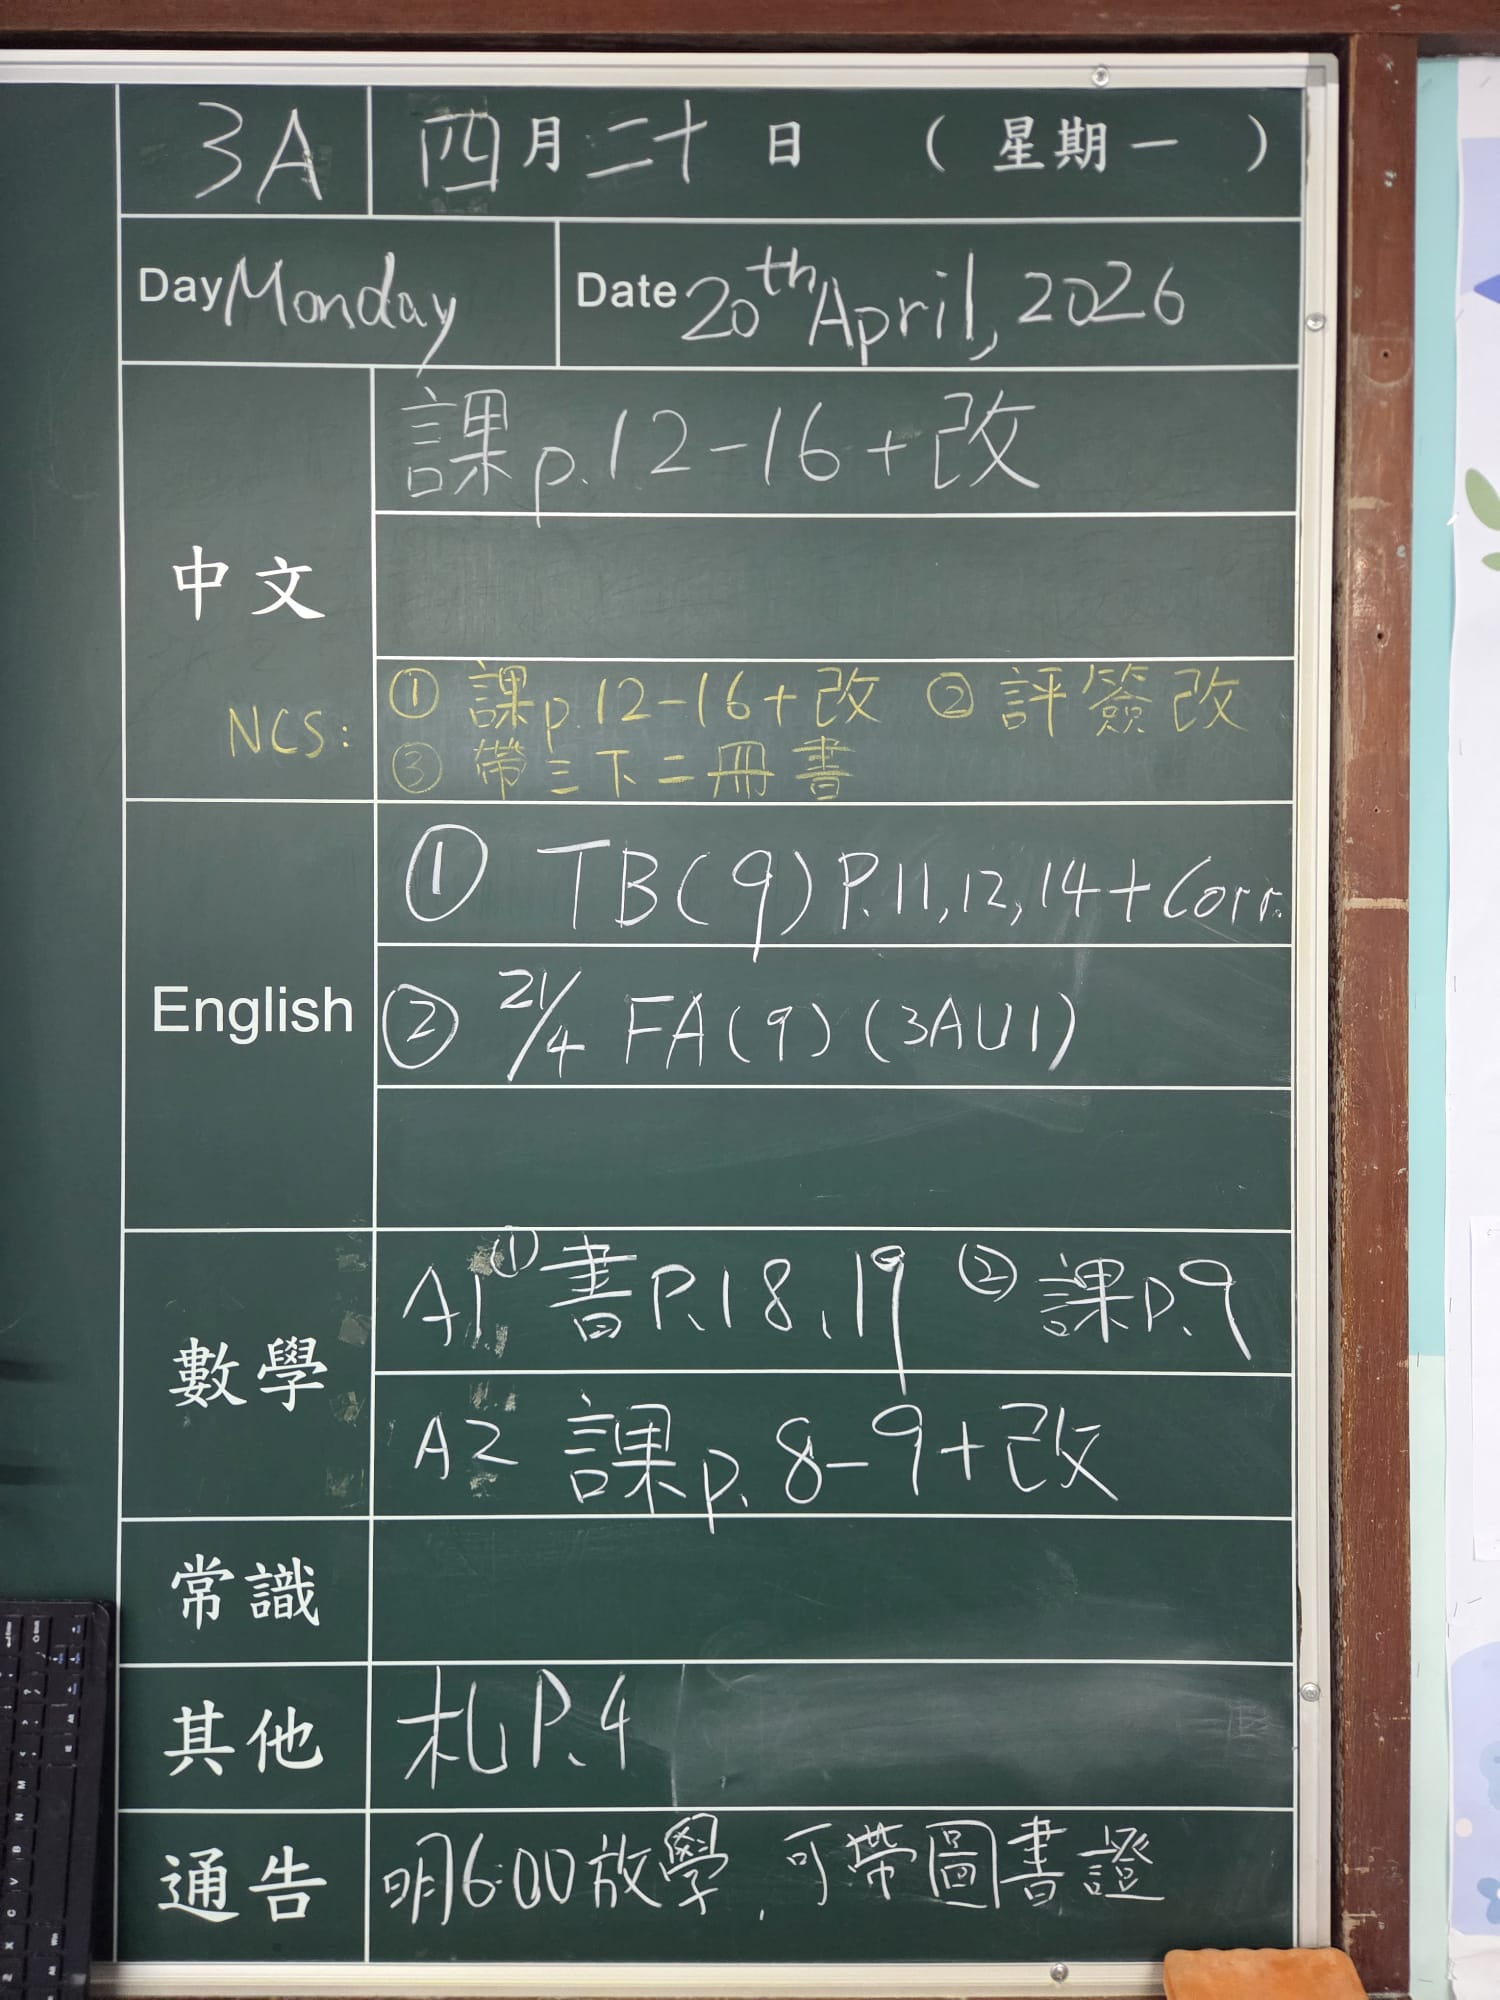 3A 四月二十日 （星期一）
Day Monday Date 20th April, 2026
課p.12-16+改
中文
NCS: ① 課p.12-16+改 ② 評簽改
③ 帶三下二冊書
① TB(9) P.11,12,14+Corr.
English ② 21/4 FA(9) (3AU1)
數學 A1 ① 書P.18、19 ② 課P.9
A2 課p.8-9+改
常識
其他 札P.4
通告 明6:00放學，可帶圖書證